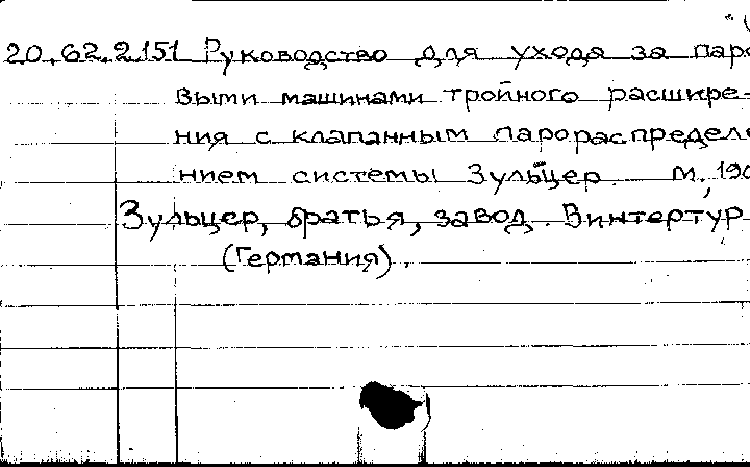 20.62.2.151 Руководство для ухода за паро
выми машинами тройного расшире-
ния с клапанным парораспредел
нием системы Зульцер. М., 190
Зульцер, братья, завод. Винтертур
(Германия).